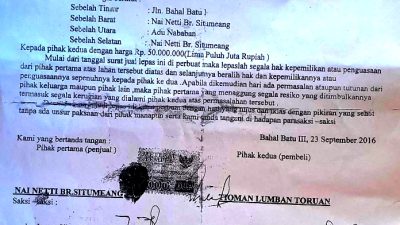 Sebelah Timur : Jln. Bahal Batu I
Sebelah Barat : Nai Netti Br. Situmeang
Sebelah Utara : Adu Nababan
Sebelah Selatan : Nai Netti Br. Situmeang
Kepada pihak kedua dengan harga Rp. 50.000.000(Lima Puluh Juta Rupiah )
Mulai dari tanggal surat jual lepas ini di perbuat maka lepaslah segala hak kepemilikan atau penguasaan
dari pihak pertama atas lahan tersebut diatas dan selanjutnya beralih hak dan kepemilikannya atau
penguasaannya sepenuhnya kepada pihak ke dua .Apabila dikemudian hari ada permasalan ataupun turunan dari
pihak keluarga maupun pihak lain ,maka pihak pertama yang menaggung segala resiko yang ditimbulkannya
termasuk segala kerugian yang dialami pihak kedua atas permasalahan tersebut .
dengan pikiran yang sehat
tanpa ada unsur paksaan dari pihak manapun serta kami tanda tangani di hadapan para saksi –saksi
Bahal Batu III, 23 September 2016
Kami yang bertanda tangan :
Pihak pertama (penjual)
Pihak kedua (pembeli)
NAI NETTI BR.SITUMEANG
TOMAN LUMBAN TORUAN
Saksi – saksi :